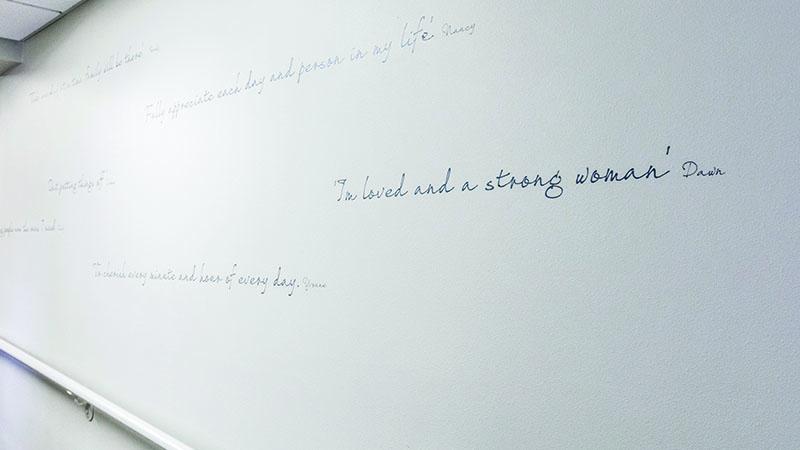 family will be there'
Fully appreciate each day and person in my life' Nancy
'I'm loved and a strong woman' Dawn
putting things off'
To cherish every minute and hour of every day.